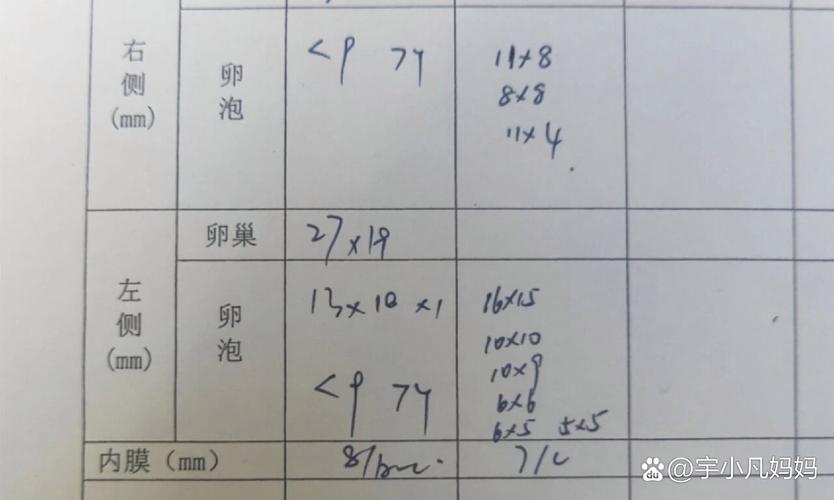 右侧(mm)
卵泡
<9 >4
11×8
8×8
11×4
左侧(mm)
卵巢
27×19
卵泡
13×10 ×1
<9 >4
16×15
10×10
10×9
6×6
6×5 5×5
内膜（mm）
8/
7/C
@宇小凡妈妈